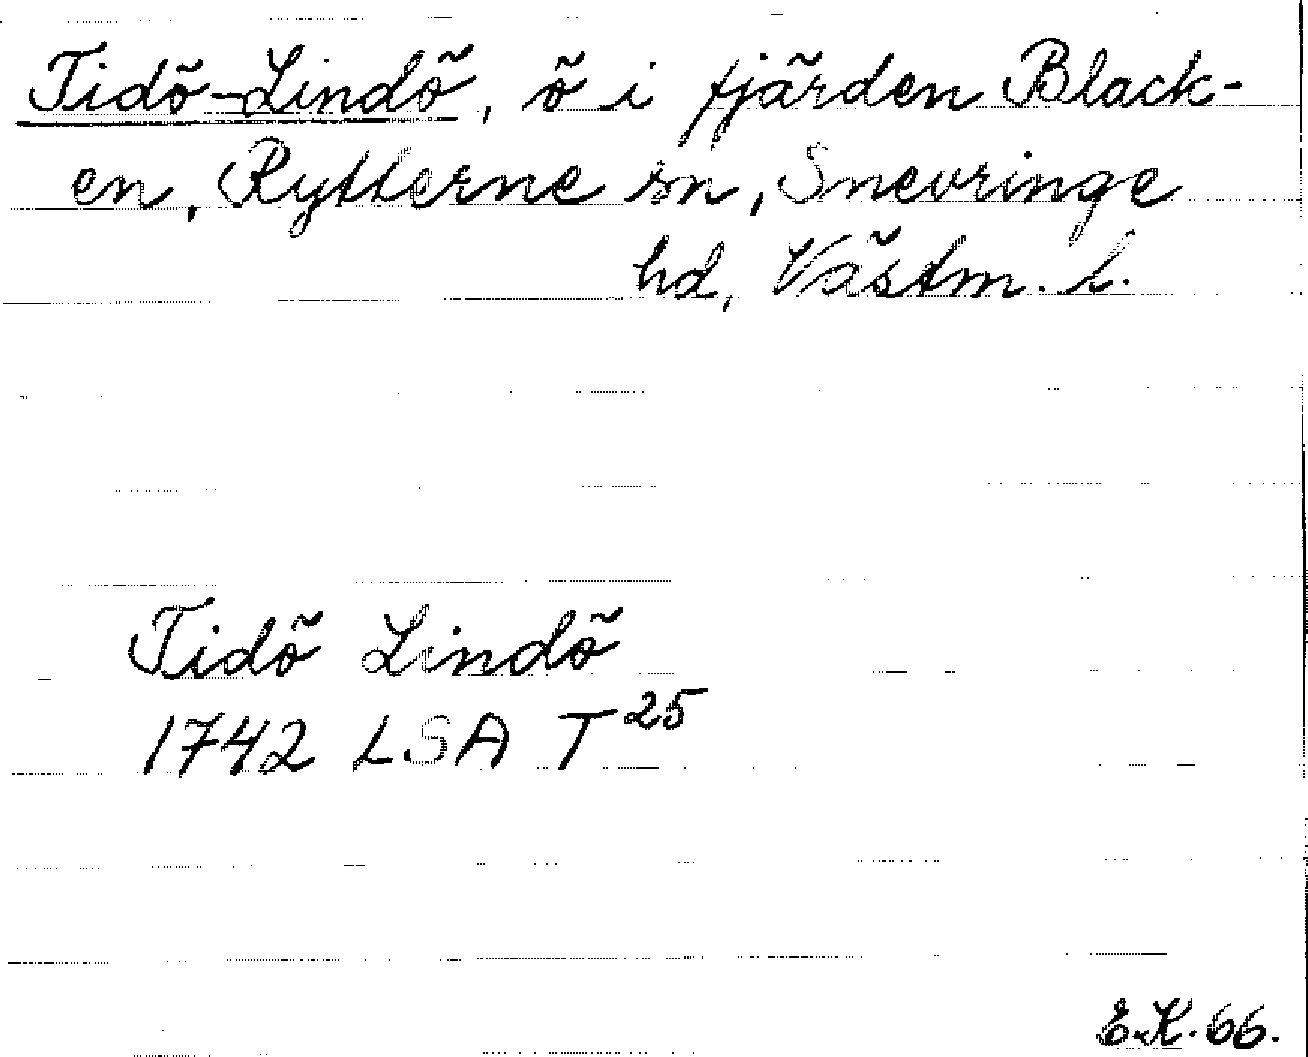 Tidö-Lindö, ö i fjärden Black-
en, Rytterne sn, Snevringe
hd, Västm. l.
Tidö Lindö
1742 LSA T25
E.K. 66.